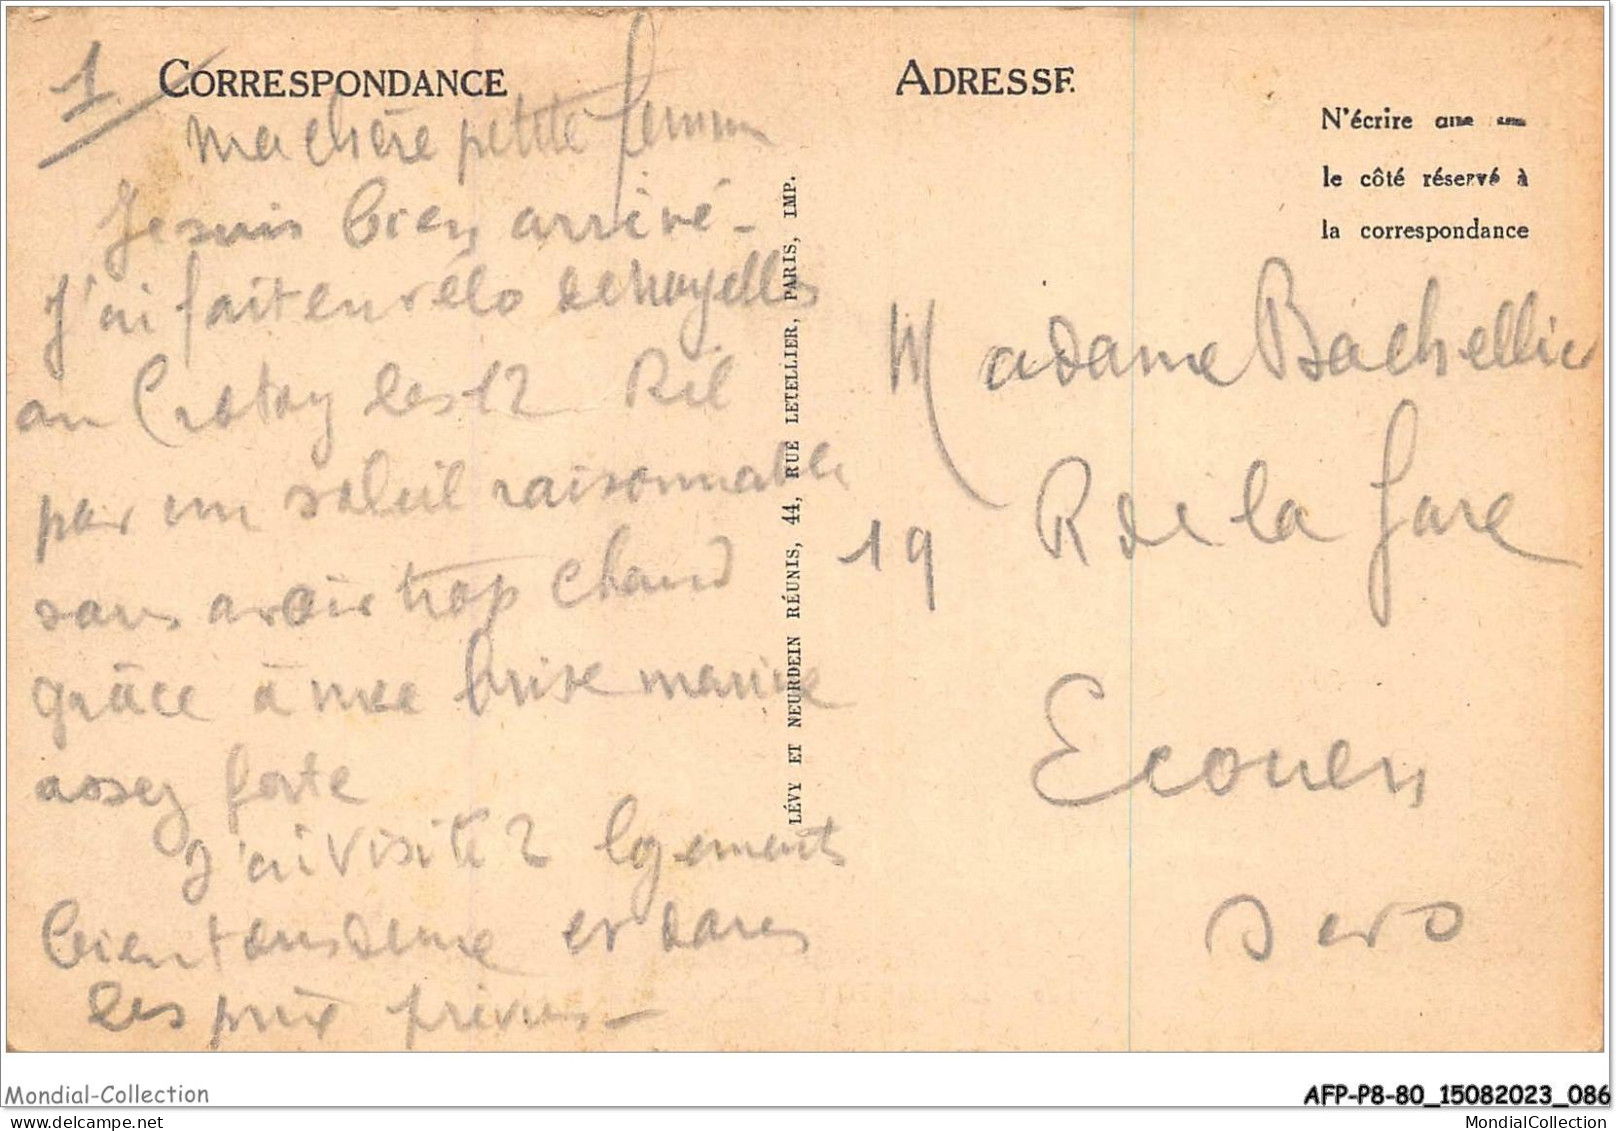 1
CORRESPONDANCE
ma chère petite femm
Je suis bien arrivé -
J'ai fait en vélo de Noyelles
au Crotoy les 12 Kil
par un soleil raisonnable
sans avoir trop chaud
grâce à une brise marine
assez forte
J'ai visité 2 logements
bien tous deux et dans
les prix prévus -
LÉVY ET NEURDEIN RÉUNIS, 44, RUE LETELLIER, PARIS, IMP.
ADRESSE
N'écrire que
le côté réservé à
la correspondance
Madame Bachellier
19 R de la Gare
Ecouen
S et O
Mondial-Collection
AFP-P8-80_15082023_086
MondialCollection